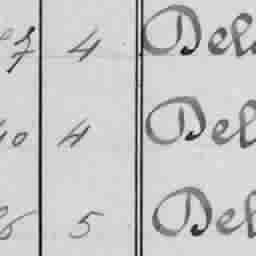 4 Del
40 4 Del
5 Del